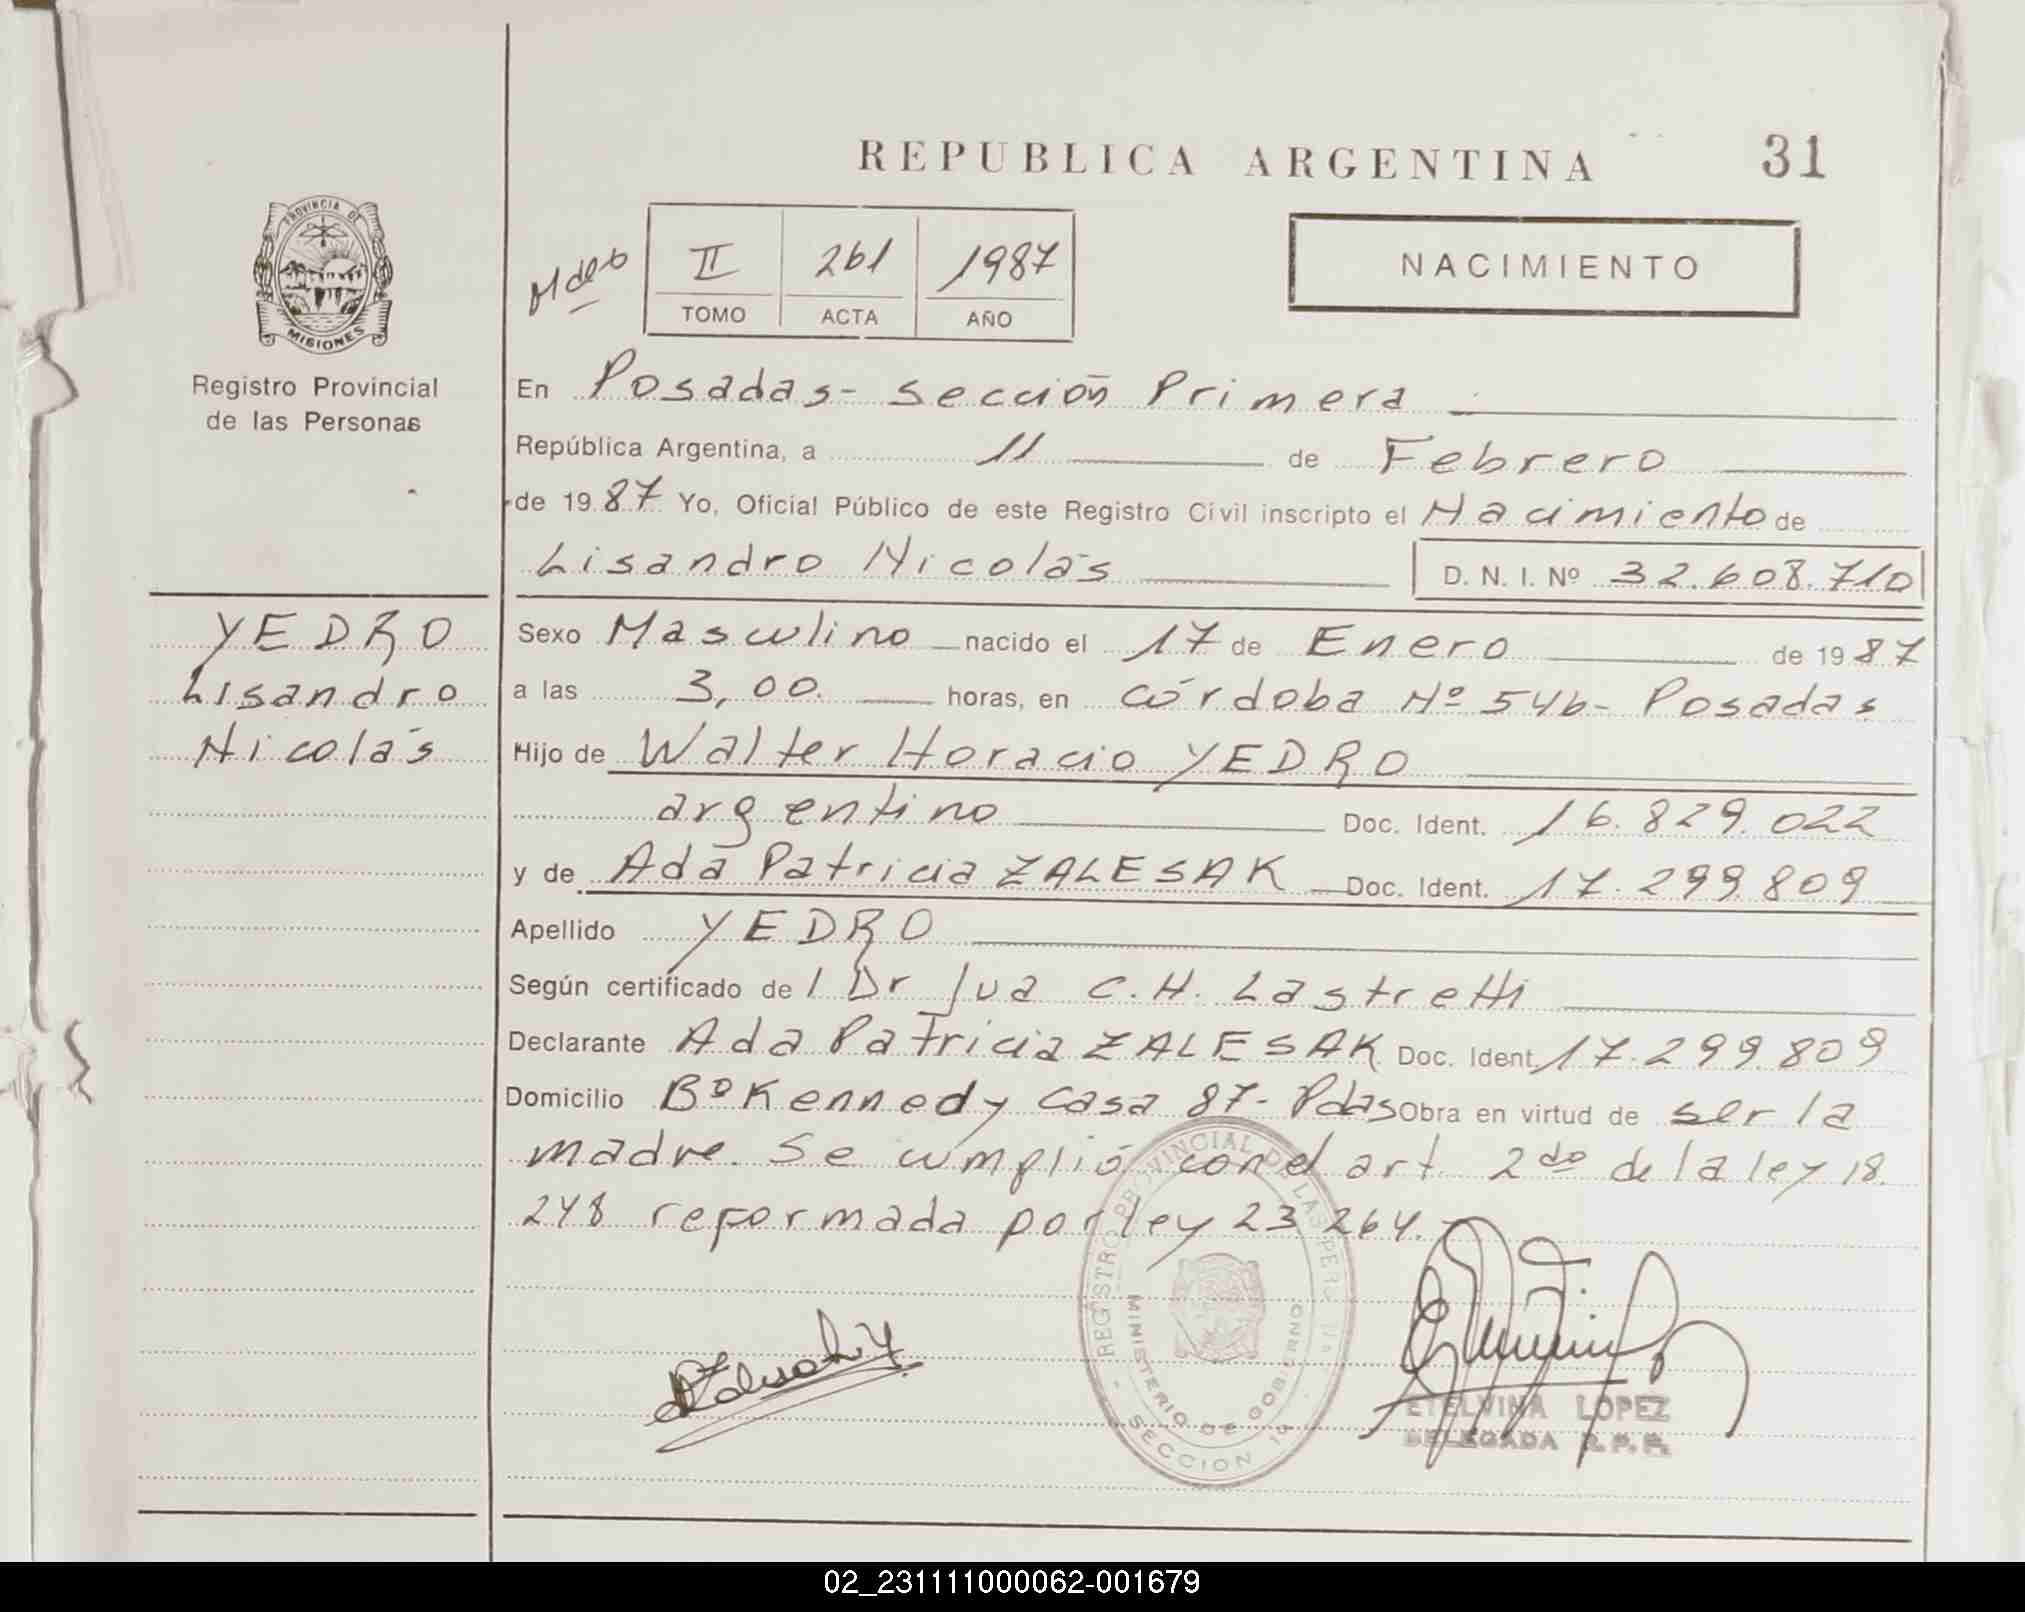 REPUBLICA ARGENTINA
31
PROVINCIA DE
MISIONES
Registro Provincial
de las Personas
II 261 1987
TOMO ACTA AÑO
NACIMIENTO
En Posadas- sección Primera
República Argentina, a 11 de Febrero
de 1987 Yo, Oficial Público de este Registro Civil inscripto el Nacimiento de
Lisandro Nicolás D. N. I. Nº 32.608.710
YEDRO
Lisandro
Nicolás
Sexo Masculino nacido el 17 de Enero de 1987
a las 3,00. horas, en Córdoba Nº 546- Posadas
Hijo de Walter Horacio YEDRO
argentino Doc. Ident. 16.829.022
y de Ada Patricia ZALESAK Doc. Ident. 17.299.809
Apellido YEDRO
Según certificado de l Dr Jua C.H. Lastretti
Declarante Ada Patricia ZALESAK Doc. Ident. 17.299.809
Domicilio Bº Kennedy Casa 87- Pdas Obra en virtud de ser la
madre. Se cumplió con el art. 2do de la ley 18.
248 reformada por ley 23.264.-
REGISTRO PROVINCIAL DE LAS PERSONAS
MINISTERIO DE GOBIERNO
SECCION 1ª
ETELVINA LOPEZ
DELEGADA R.P.P.
02_231111000062-001679